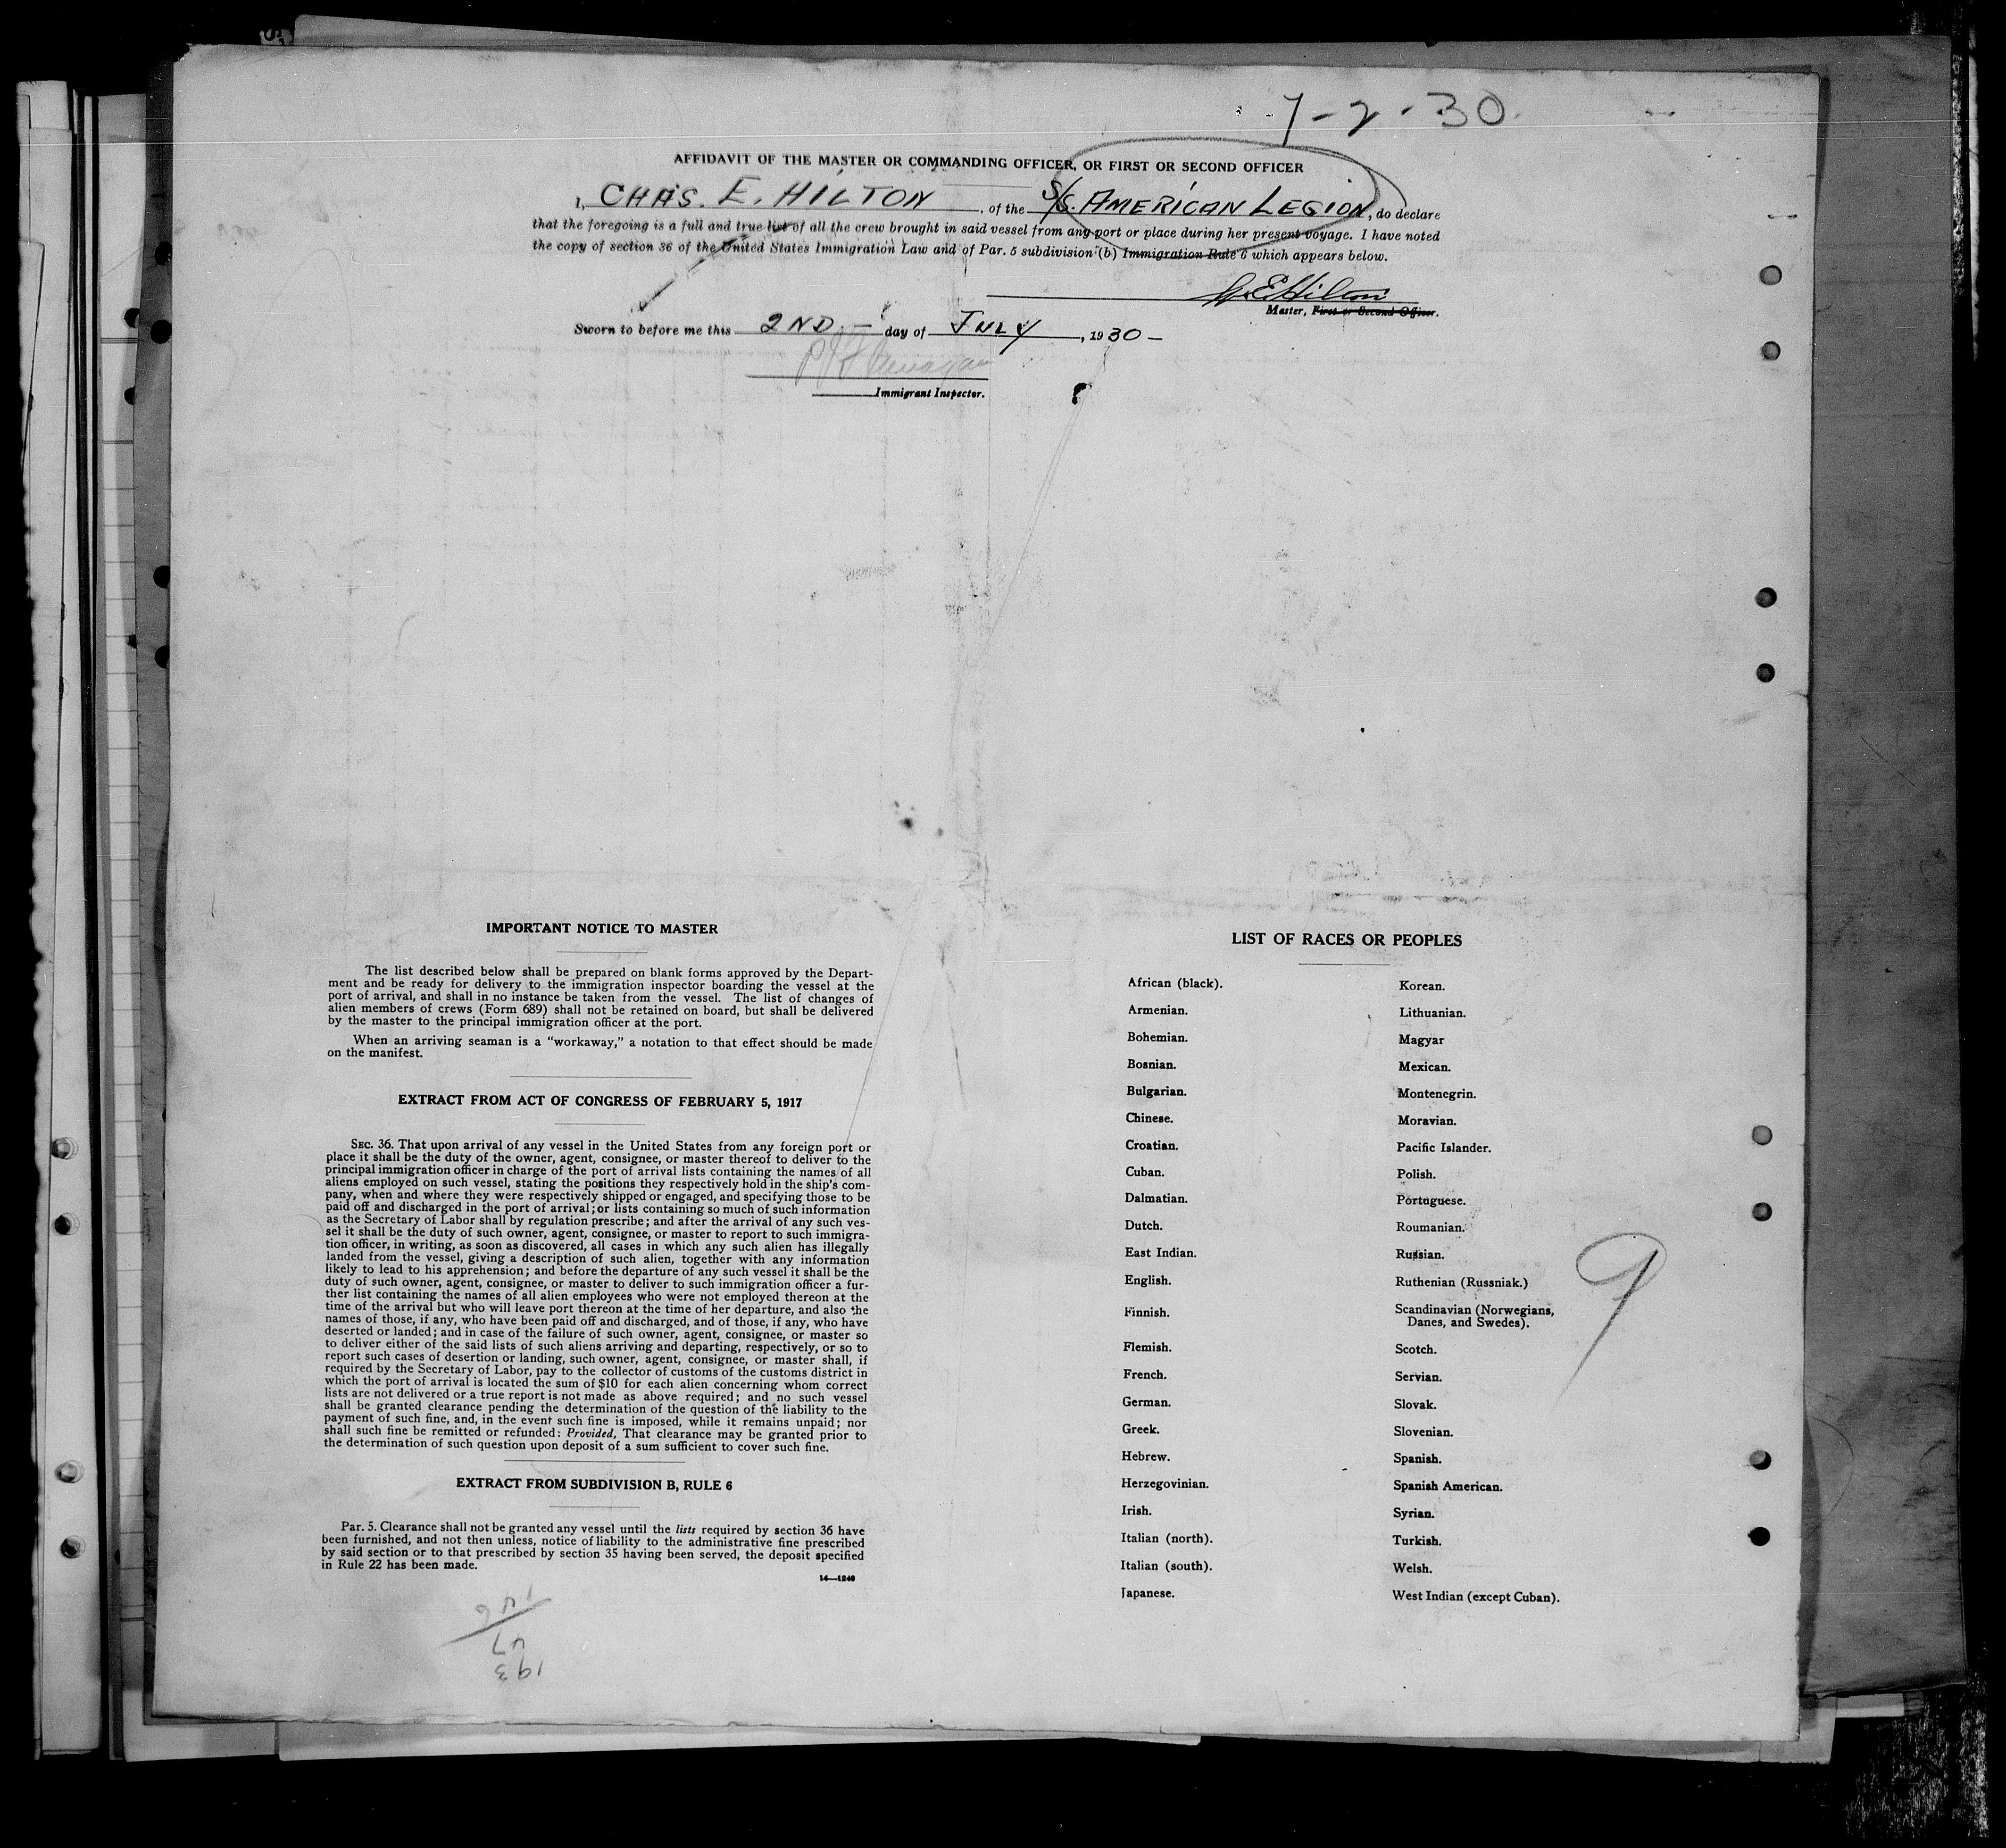 7-2-30.
AFFIDAVIT OF THE MASTER OR COMMANDING OFFICER, OR FIRST OR SECOND OFFICER
I, CHAS. E. HILTON, of the S/S. AMERICAN LEGION, do declare
that the foregoing is a full and true list of all the crew brought in said vessel from any port or place during her present voyage. I have noted
the copy of section 36 of the United States Immigration Law and of Par. 5 subdivision (b) Immigration Rule 6 which appears below.
Hilton
Master, First or Second Officer.
Sworn to before me this 2ND. — day of JULY, 1930 —
Immigrant Inspector.
IMPORTANT NOTICE TO MASTER
The list described below shall be prepared on blank forms approved by the Depart-
ment and be ready for delivery to the immigration inspector boarding the vessel at the
port of arrival, and shall in no instance be taken from the vessel. The list of changes of
alien members of crews (Form 689) shall not be retained on board, but shall be delivered
by the master to the principal immigration officer at the port.
When an arriving seaman is a "workaway," a notation to that effect should be made
on the manifest.
EXTRACT FROM ACT OF CONGRESS OF FEBRUARY 5, 1917
SEC. 36. That upon arrival of any vessel in the United States from any foreign port or
place it shall be the duty of the owner, agent, consignee, or master thereof to deliver to the
principal immigration officer in charge of the port of arrival lists containing the names of all
aliens employed on such vessel, stating the positions they respectively hold in the ship's com-
pany, when and where they were respectively shipped or engaged, and specifying those to be
paid off and discharged in the port of arrival; or lists containing so much of such information
as the Secretary of Labor shall by regulation prescribe; and after the arrival of any such ves-
sel it shall be the duty of such owner, agent, consignee, or master to report to such immigra-
tion officer, in writing, as soon as discovered, all cases in which any such alien has illegally
landed from the vessel, giving a description of such alien, together with any information
likely to lead to his apprehension; and before the departure of any such vessel it shall be the
duty of such owner, agent, consignee, or master to deliver to such immigration officer a fur-
ther list containing the names of all alien employees who were not employed thereon at the
time of the arrival but who will leave port thereon at the time of her departure, and also the
names of those, if any, who have been paid off and discharged, and of those, if any, who have
deserted or landed; and in case of the failure of such owner, agent, consignee, or master so
to deliver either of the said lists of such aliens arriving and departing, respectively, or so to
report such cases of desertion or landing, such owner, agent, consignee, or master shall, if
required by the Secretary of Labor, pay to the collector of customs of the customs district in
which the port of arrival is located the sum of $10 for each alien concerning whom correct
lists are not delivered or a true report is not made as above required; and no such vessel
shall be granted clearance pending the determination of the question of the liability to the
payment of such fine, and, in the event such fine is imposed, while it remains unpaid; nor
shall such fine be remitted or refunded: Provided, That clearance may be granted prior to
the determination of such question upon deposit of a sum sufficient to cover such fine.
EXTRACT FROM SUBDIVISION B, RULE 6
Par. 5. Clearance shall not be granted any vessel until the lists required by section 36 have
been furnished, and not then unless, notice of liability to the administrative fine prescribed
by said section or to that prescribed by section 35 having been served, the deposit specified
in Rule 22 has been made.
14—1240
193
47
LIST OF RACES OR PEOPLES
African (black).
Armenian.
Bohemian.
Bosnian.
Bulgarian.
Chinese.
Croatian.
Cuban.
Dalmatian.
Dutch.
East Indian.
English.
Finnish.
Flemish.
French.
German.
Greek.
Hebrew.
Herzegovinian.
Irish.
Italian (north).
Italian (south).
Japanese.
Korean.
Lithuanian.
Magyar
Mexican.
Montenegrin.
Moravian.
Pacific Islander.
Polish.
Portuguese.
Roumanian.
Russian.
Ruthenian (Russniak.)
Scandinavian (Norwegians,
Danes, and Swedes).
Scotch.
Servian.
Slovak.
Slovenian.
Spanish.
Spanish American.
Syrian.
Turkish.
Welsh.
West Indian (except Cuban).
9